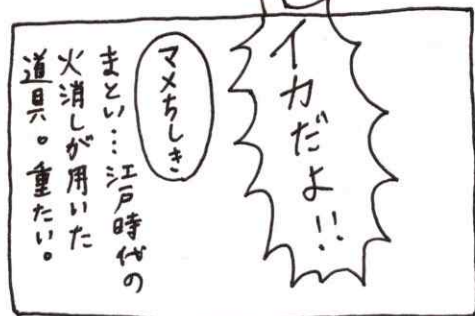 イカだよ!!
マメちしき
まとい…江戸時代の
火消しが用いた
道具。重たい。